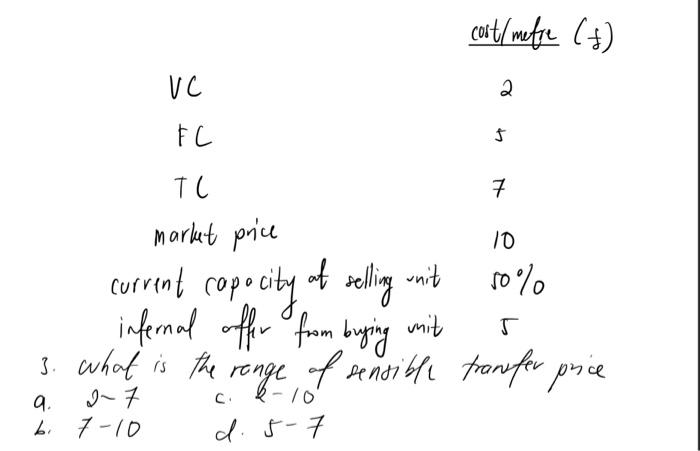 cost/metre (£)
VC 2
FC 5
TC 7
market price 10
current capacity at selling unit 50%
internal offer from buying unit 5
3. what is the range of sensible transfer price
a. 2-7 c. 2-10
b. 7-10 d. 5-7